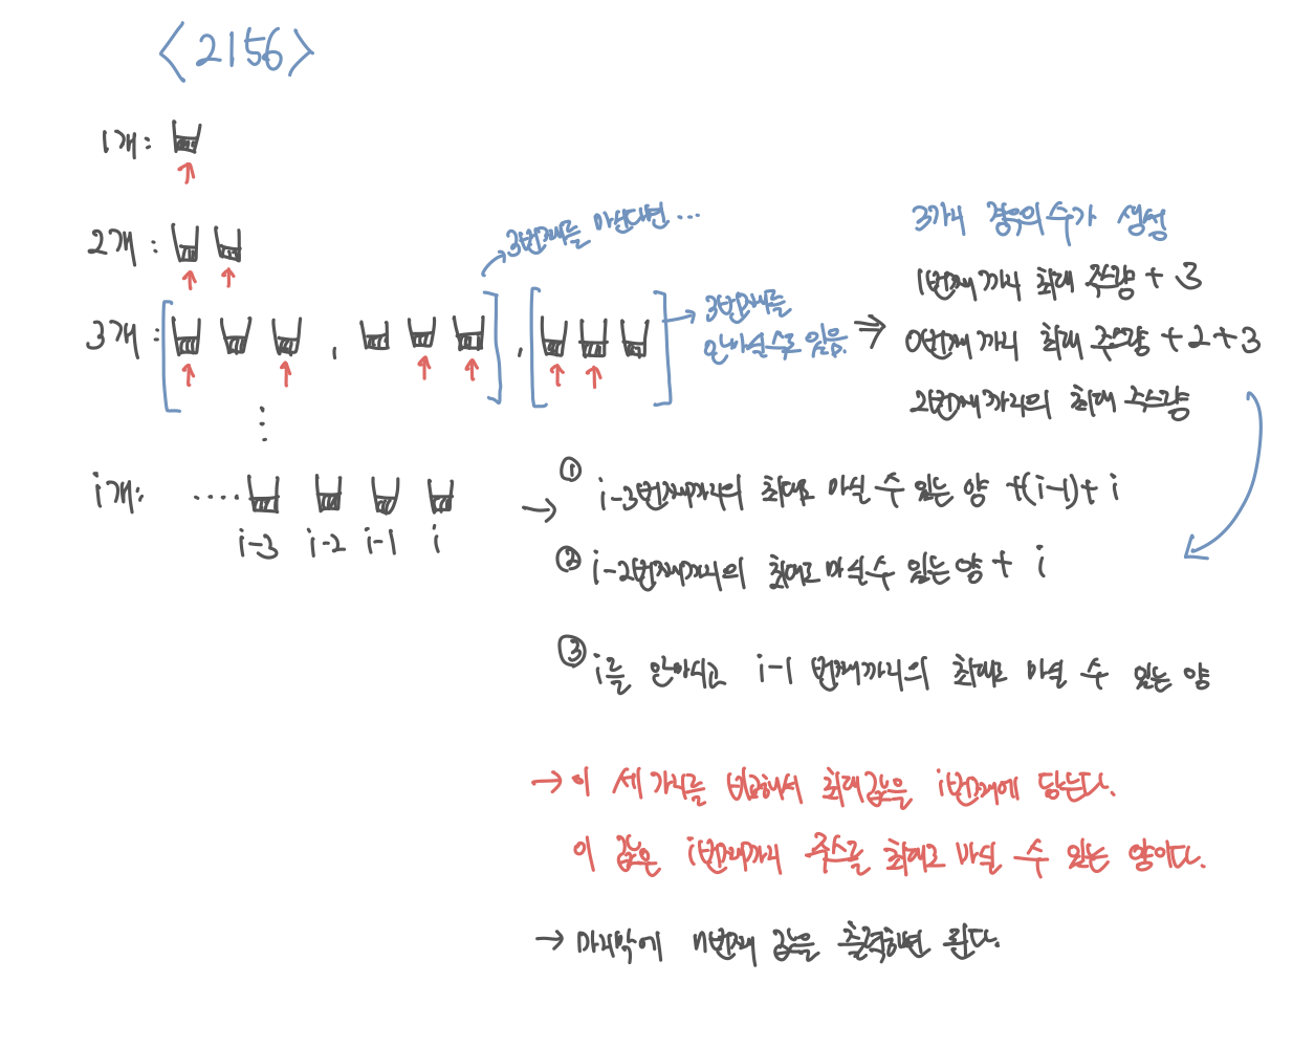 <2156>
1개:
2개:
3번째를 마신다면...
3개:
,
,
3번째를
안마실수도 있음.
3가지 경우의수가 생성
1번째까지 최대 주스량 + 3
0번째까지 최대 주스량 + 2 + 3
2번째까지의 최대 주스량
⋮
i개: ....
i-3 i-2 i-1 i
① i-3번째까지의 최대로 마실 수 있는 양 +(i-1)+ i
② i-2번째까지의 최대로 마실수 있는양 + i
③ i를 안마시고 i-1 번째까지의 최대로 마실 수 있는 양
→ 이 세 가지를 비교해서 최대값을 i번째에 담는다.
이 값은 i번째까지 주스를 최대로 마실 수 있는 양이다.
→ 마지막에 n번째 값을 출력하면 된다.